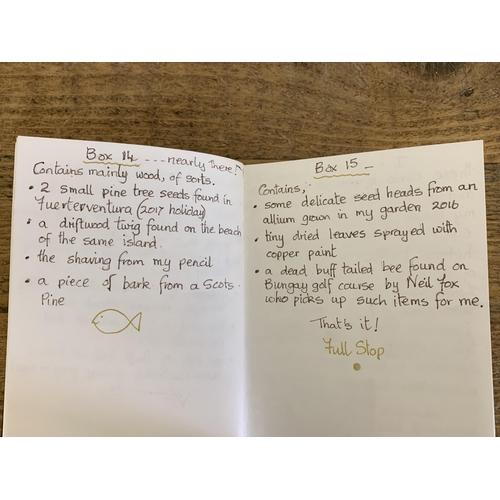 Box 14 ---nearly there!
Contains mainly wood, of sorts.
• 2 small pine tree seeds found in
Fuerterventura (2017 holiday)
• a driftwood twig found on the beach
of the same island.
• the shaving from my pencil
• a piece of bark from a Scots.
Pine
Box 15 –
Contains,
• some delicate seed heads from an
allium grown in my garden 2016
• tiny dried leaves sprayed with
copper paint
• a dead buff tailed bee found on
Bungay golf course by Neil Fox
who picks up such items for me.
That's it!
Full Stop